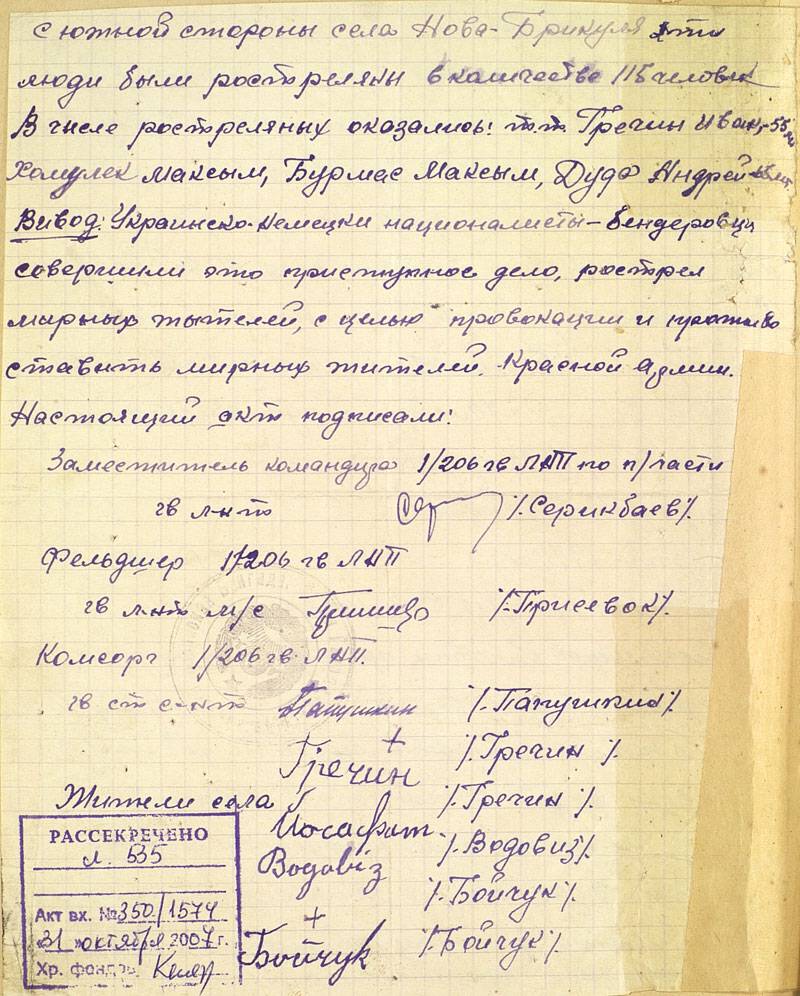 с южной стороны села Нова-Брикуля эти
люди были рострeляны в количестве 115 человек
В числе рострeляных оказались: т.т. Гречин Иван, - 55 л
Хомулек Максым, Бурмас Максым, Дуда Андрей - 65 лет.
Вивод: Украинско-немецки националисты - бендеровци
совершили это приступное дело, рострел
мирных жытелей, с целью провокации и противо
ставить мирных жителей. Красной Армии.
Настоящий акт подписали:
Заместитель командира 1/206 гв ЛАП по п/части
гв л-нт /.Серикбаев/.
Фельдшер 1/206 гв ЛАП
гв л-нт м/с /.Присевок/.
Комсорг 1/206 гв. ЛАП.
гв ст с-нт Папушкин /.Папушкин/.
+
Гречин /.Гречин/.
Жители села Иосафат /.Гречин/.
Водовіз /.Водовиз/.
+ /.Бойчук/.
Бойчук /.Бойчук/.
РАССЕКРЕЧЕНО
л. 535
Акт вх. № 350/1574
«31» октября 2007 г.
Хр. фондов